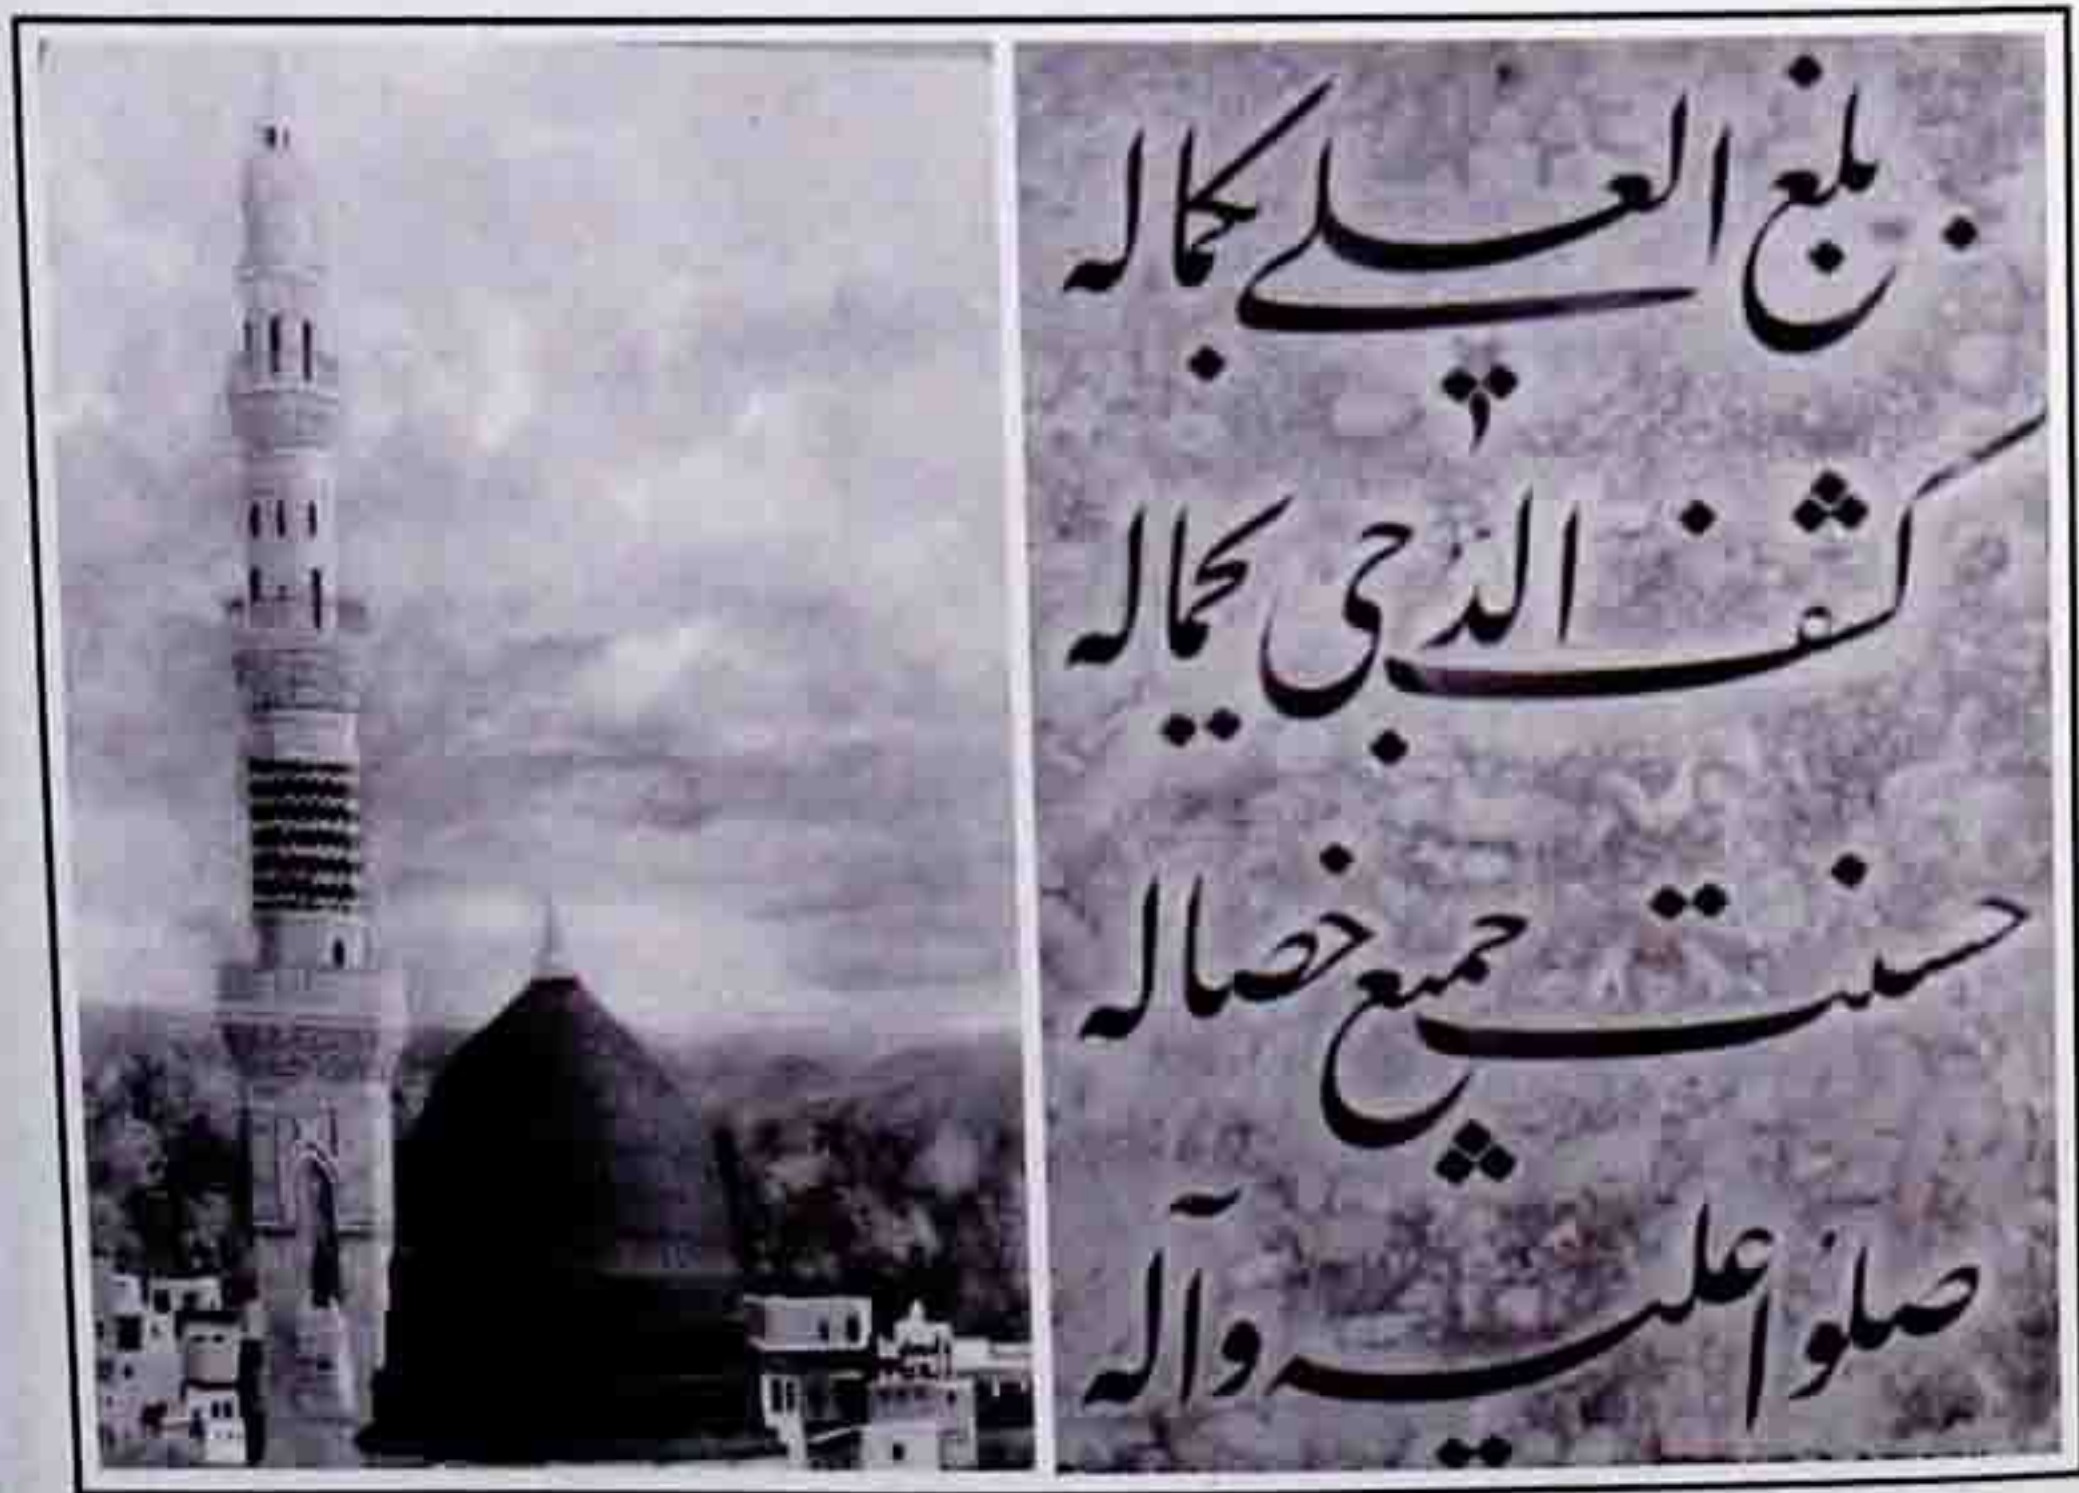 بلغ العلے بکمالہ
کشف الدجی بجمالہ
حسنت جمیع خصالہ
صلوا علیہ وآلہ